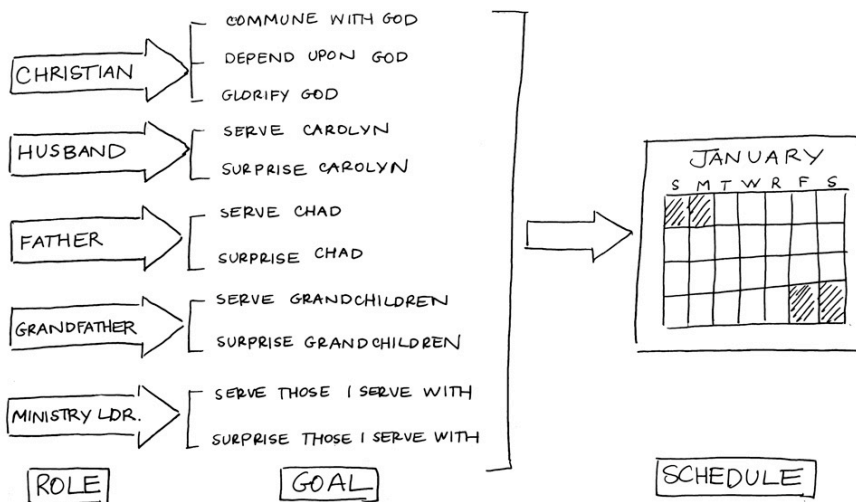 COMMUNE WITH GOD
CHRISTIAN
DEPEND UPON GOD
GLORIFY GOD
HUSBAND
SERVE CAROLYN
SURPRISE CAROLYN
FATHER
SERVE CHAD
SURPRISE CHAD
GRANDFATHER
SERVE GRANDCHILDREN
SURPRISE GRANDCHILDREN
MINISTRY LDR.
SERVE THOSE I SERVE WITH
SURPRISE THOSE I SERVE WITH
JANUARY
S M T W R F S
ROLE
GOAL
SCHEDULE